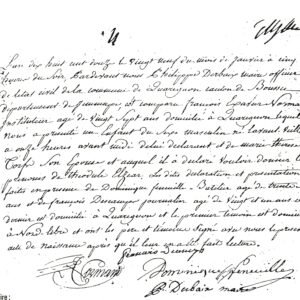 L'an dix huit cent douze le vingt neuf du mois de janvier à cinq
heures du soir, Pardevant nous Philippe Debaix maire officier
de l'état civil de la commune de Quaregnon canton de Boussu
Département de Jemmape est comparu françois Xavier
instituteur agé de vingt sept ans domicilié à Quaregnon lequel
nous a présenté un enfant du sexe masculin né
à onze heures avant midi de lui déclarant et de marie therese
son épouse et auquel il a déclaré vouloir donner les
prénoms de théodule Elzear. Les dites déclaration et présentation
faites en présence de Dominique agé de trente
ans et de françois journalier agé de vingt et un ans
domicilié à Quaregnon et le premier témoin est domicilié
à et ont les père et témoins signé avec nous le présent
acte de naissance après qu'il leur en a été fait lecture.
Dominique
P. Debaix maire
ire: